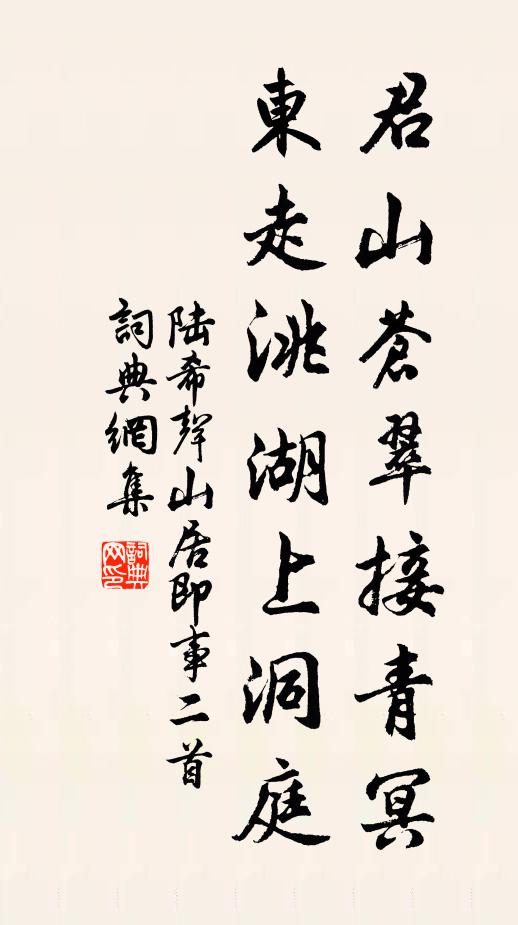 君山蒼翠接青冥
東走洮湖上洞庭
陸希聲山居即事二首
詞典網集
詞典网印